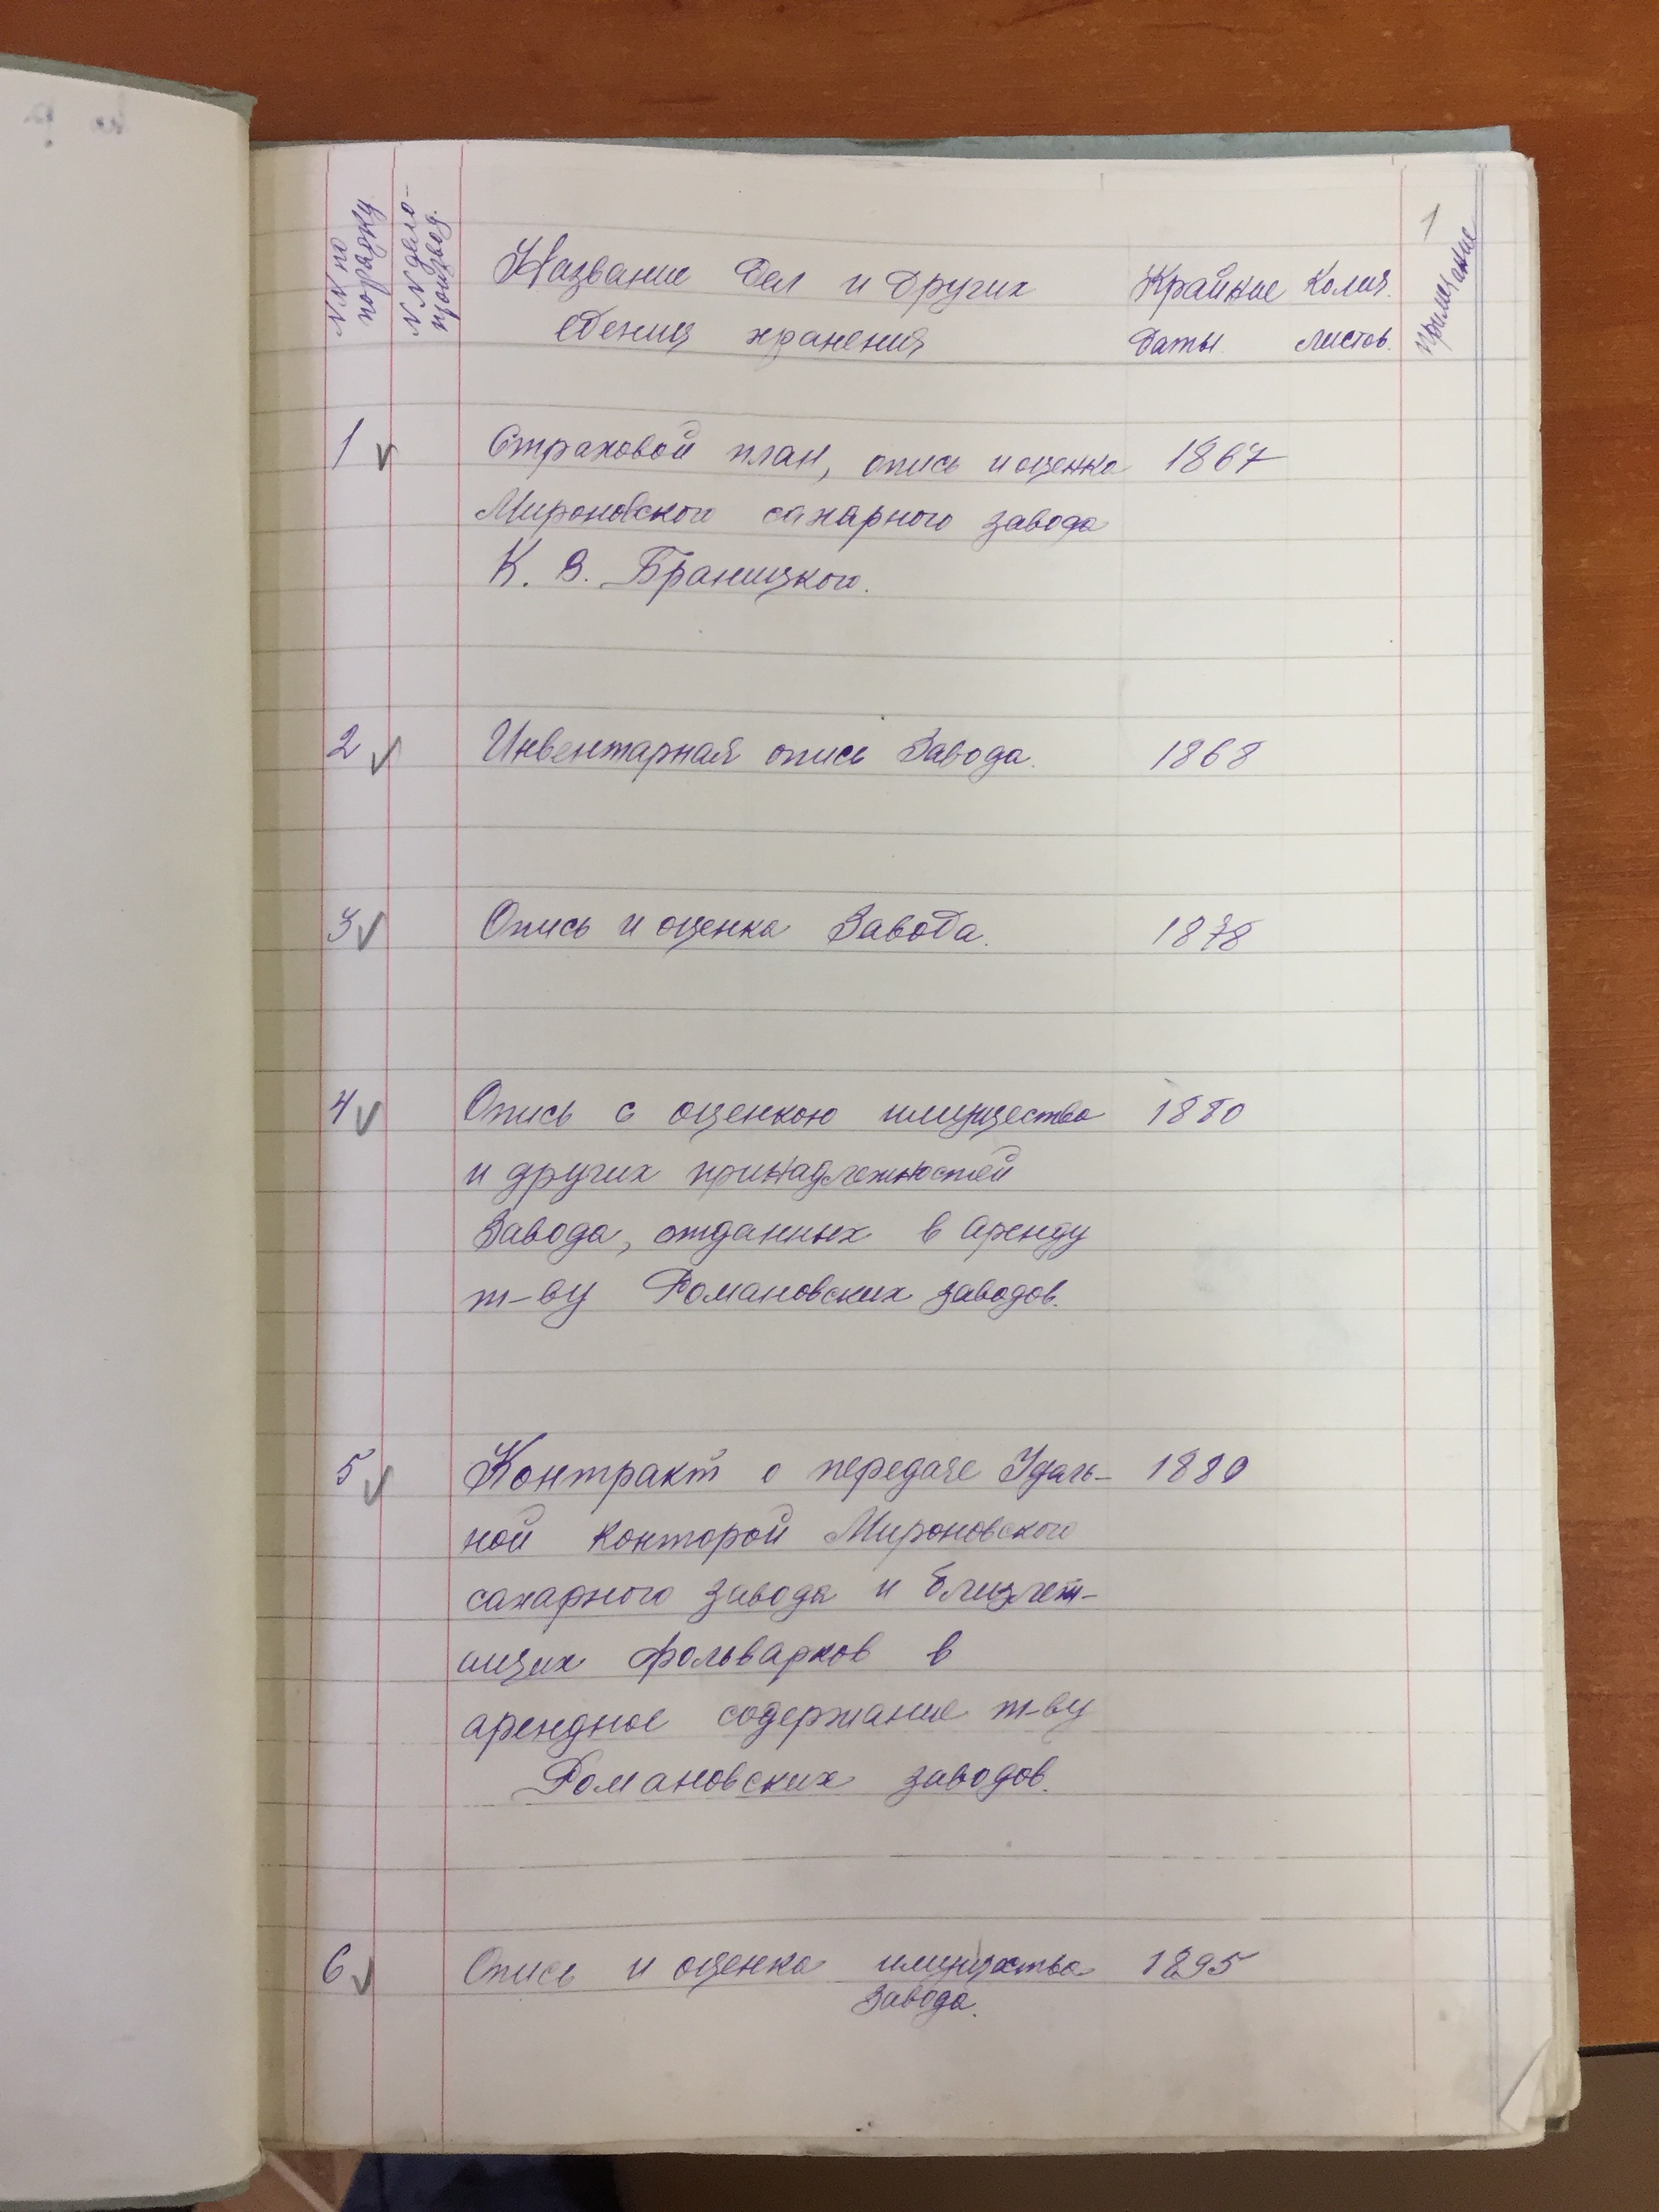 1
NN по порядку
NN дело-производ.
Название дел и других
единиц хранения
Крайние даты
Колич. листов.
примечание
1 Страховой план, опись и оценка 1867
Мироновского сахарного завода
К. В. Браницкого.
2 Инвентарная опись Завода. 1868
3 Опись и оценка Завода. 1878
4 Опись с оценкою имущества 1880
и других принадлежностей
Завода, отданных в аренду
т-ву Романовских заводов.
5 Контракт о передаче Удель- 1880
ной Конторой Мироновского
сахарного завода и близлеж-
ищих фольварков в
арендное содержание т-ву
Романовских заводов.
6 Опись и оценка имущества 1895
завода.